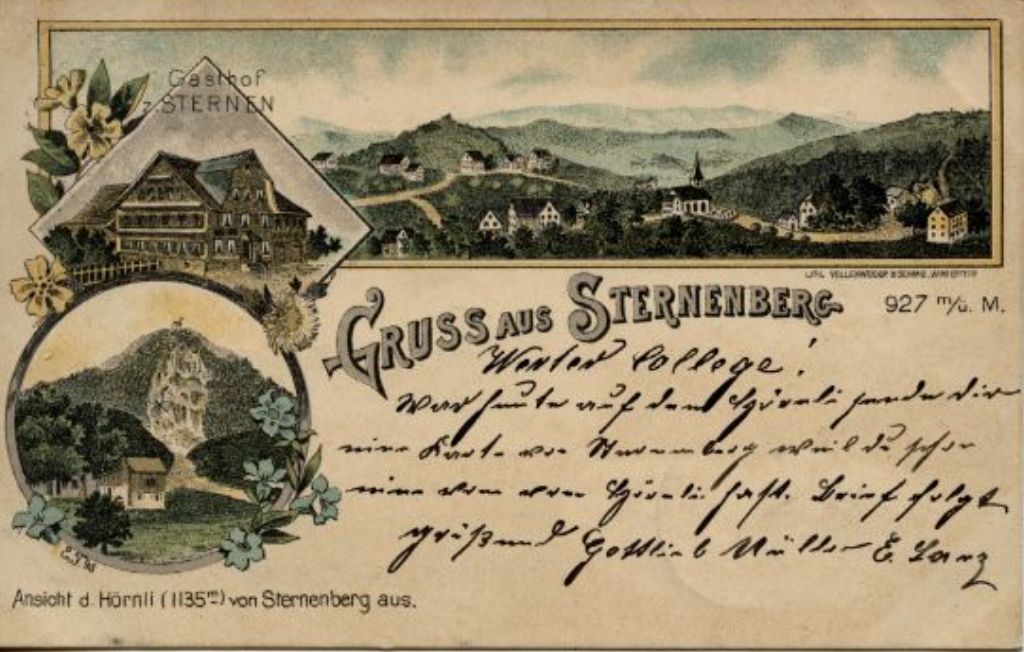 Gasthof
z. STERNEN
LITH. VOLLENWEIDER & SCHMID, WINTERTHUR
GRUSS AUS STERNENBERG
927 m/ü. M.
Werter College!
War heute auf dem Hörnli sende dir
eine Karte von Sternenberg weil du schon
eine vom Hörnli hast. Brief folgt
grüßend Gottlieb Müller E. Lanz
Ansicht d. Hörnli (1135 m) von Sternenberg aus.